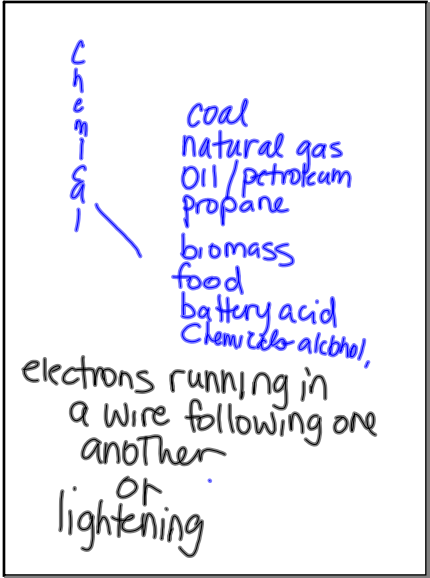 Chemical
coal
natural gas
oil/petroleum
propane
biomass
food
battery acid
Chemicals alcohol,
electrons running in
a wire following one
another
or
lightening